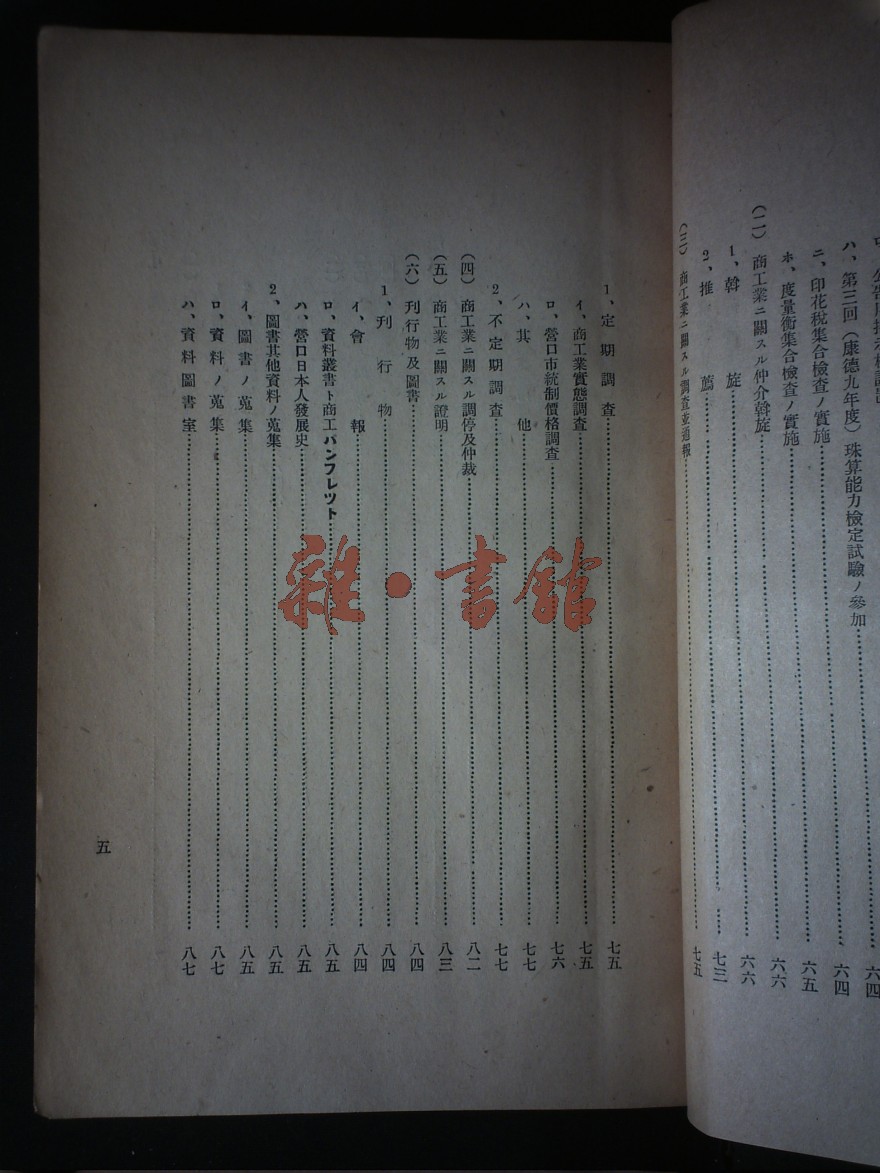 ハ、第三回(康德九年度)珠算能力檢定試驗ノ參加……六四
ニ、印花稅集合檢查ノ實施……六五
ホ、度量衡集合檢查ノ實施……六六
(二)商工業ニ關スル仲介斡旋……六六
1、斡旋……七三
2、推薦
(三)商工業ニ關スル調查並通報……七五
1、定期調查……七五
イ、商工業實態調查……七五
ロ、營口市統制價格調查……七六
ハ、其他……七七
2、不定期調查……七七
(四)商工業ニ關スル調停及仲裁……八二
(五)商工業ニ關スル證明……八三
(六)刊行物及圖書……八四
1、刊行物……八四
イ、會報……八四
ロ、資料叢書ト商工パンフレツト……八五
ハ、營口日本人發展史……八五
2、圖書其他資料ノ蒐集……八五
イ、圖書ノ蒐集……八五
ロ、資料ノ蒐集……八七
ハ、資料圖書室……八七
五
雜·書館